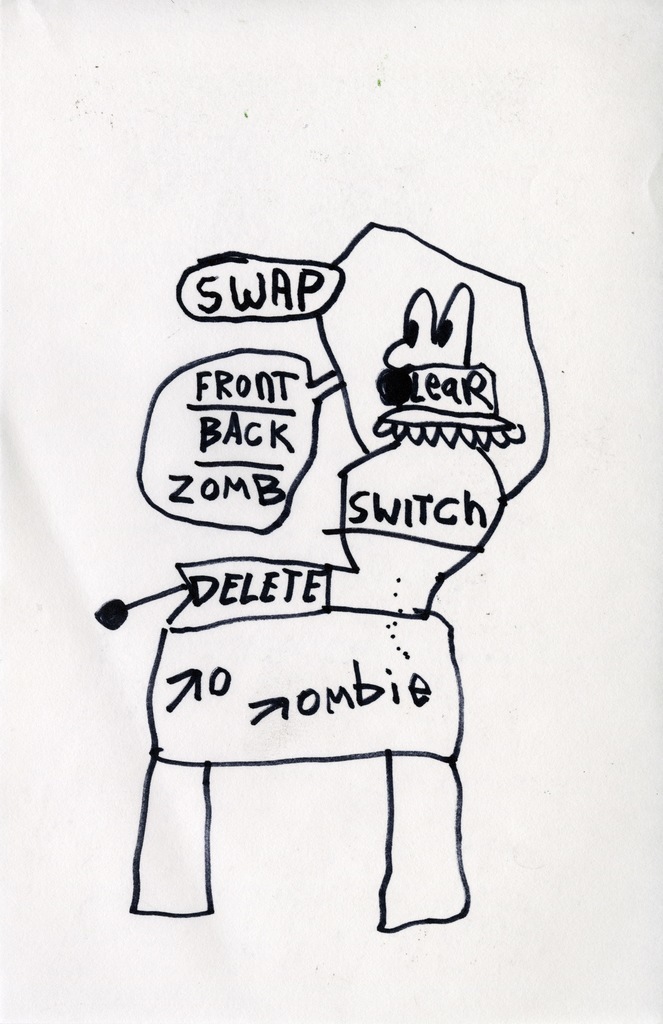 SWAP
CLeaR
FRONT
BACK
ZOMB
SWITCh
DELETE